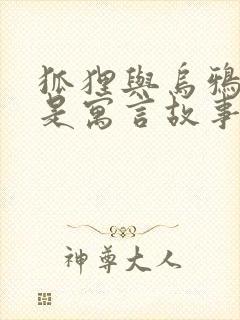 狐狸與烏鴉
是寓言故事
神尊大人